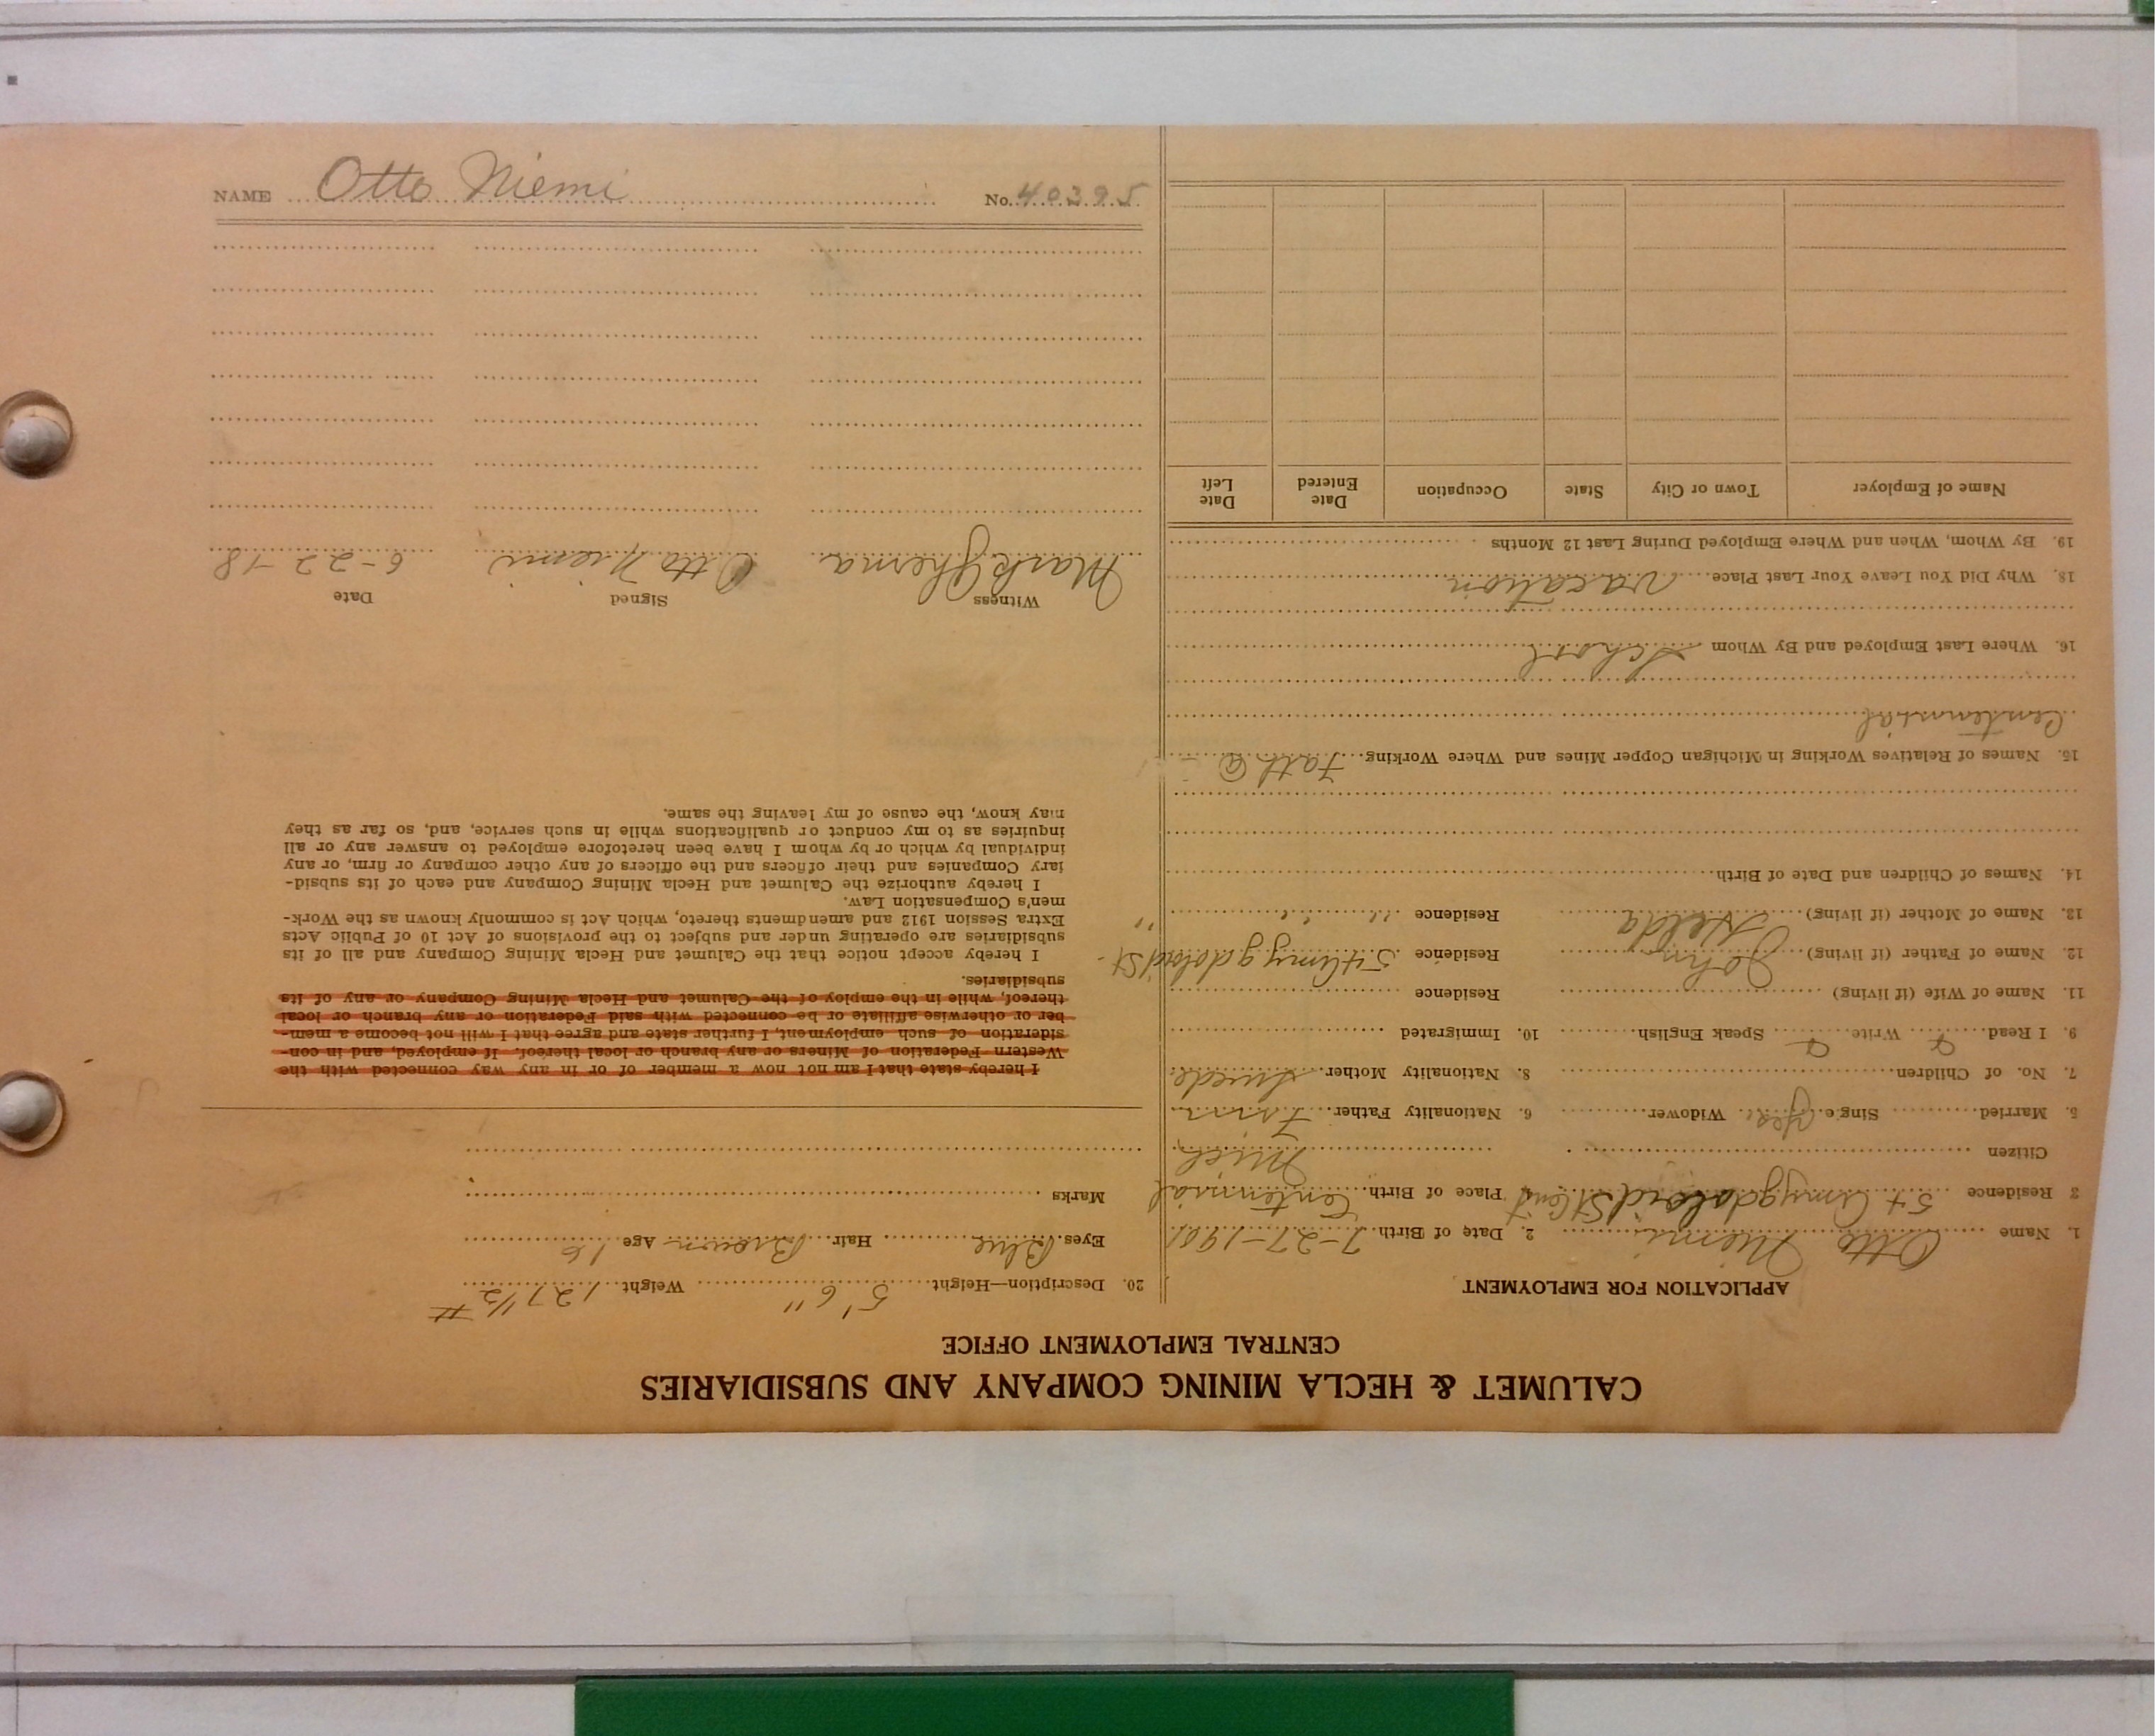 NAME Otto Niemi No. 40395
CALUMET & HECLA MINING COMPANY AND SUBSIDIARIES
CENTRAL EMPLOYMENT OFFICE
APPLICATION FOR EMPLOYMENT
1. Name Otto Niemi 2. Date of Birth 7-27-1901
3 Residence 54 Amygdaloid St Cent 4 Place of Birth Centennial
Citizen Mich
5. Married Single Yes Widower 6. Nationality Father Finn
7. No. of Children 8. Nationality Mother Swede
9. I Read Write Speak English 10. Immigrated
11. Name of Wife (if living) Residence
12. Name of Father (if living) John Residence 54 Amygdaloid St.
13. Name of Mother (if living) Helda Residence " "
14. Names of Children and Date of Birth
15. Names of Relatives Working in Michigan Copper Mines and Where Working Fath @
Centennial
16. Where Last Employed and By Whom School
18. Why Did You Leave Your Last Place vacation
19. By Whom, When and Where Employed During Last 12 Months
Name of Employer Town or City State Occupation Date Entered Date Left
20. Description—Height 5' 6" Weight 127 1/2 #
Eyes Blue Hair Brown Age 16
Marks
I hereby state that I am not now a member of or in any way connected with the
Western Federation of Miners or any branch or local thereof. If employed, and in con-
sideration of such employment, I further state and agree that I will not become a mem-
ber or otherwise affiliate or be connected with said Federation or any branch or local
thereof, while in the employ of the Calumet and Hecla Mining Company or any of its
subsidiaries.
I hereby accept notice that the Calumet and Hecla Mining Company and all of its
subsidiaries are operating under and subject to the provisions of Act 10 of Public Acts
Extra Session 1912 and amendments thereto, which Act is commonly known as the Work-
men's Compensation Law.
I hereby authorize the Calumet and Hecla Mining Company and each of its subsid-
iary Companies and their officers and the officers of any other company or firm, or any
individual by which or by whom I have been heretofore employed to answer any or all
inquiries as to my conduct or qualifications while in such service, and, so far as they
may know, the cause of my leaving the same.
Witness Signed Date
Mark Otto Niemi 6-22-18